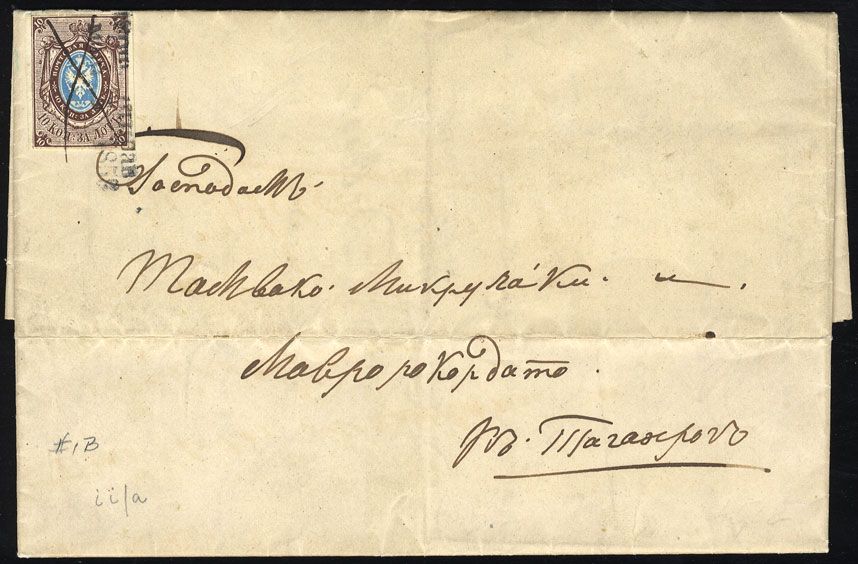 ПОЧТОВАЯ МАРКА
10 КОП. ЗА ЛОТЪ
Господамъ
Тамвако. Микрулаки. и
Мавророкордато.
въ. Таганрогъ
#1B
ii/a